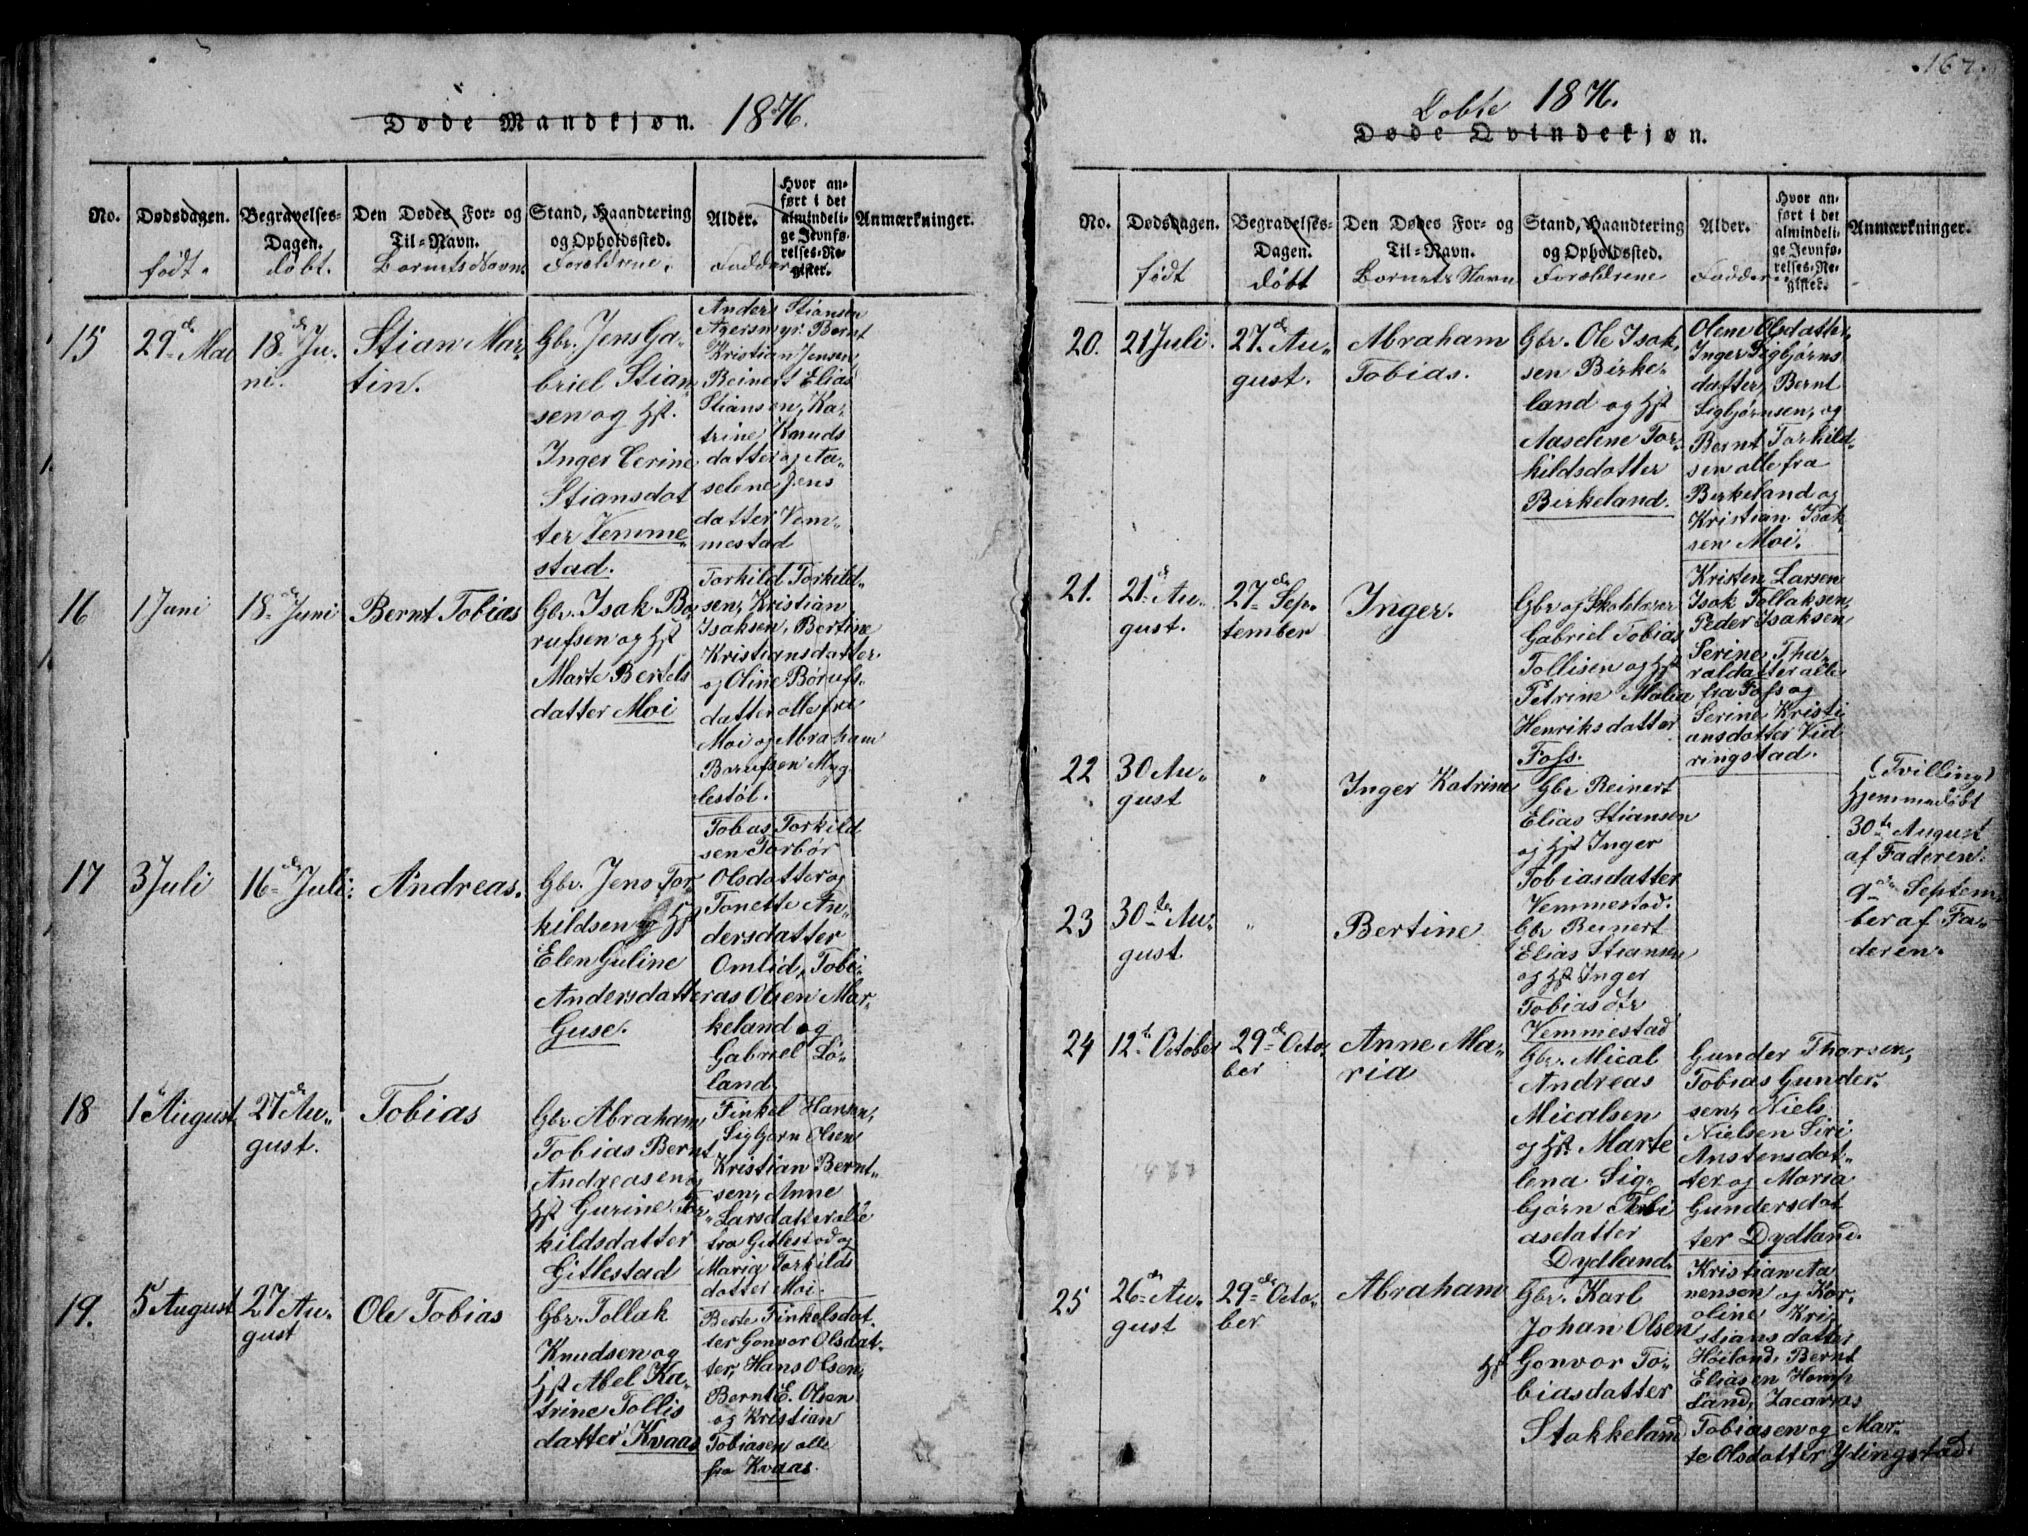 Døde Mandkjøn. 1876.
No.
Dødsdagen.
født.
Begravelses-
Dagen.
døbt.
Den Dødes For- og
Til-Navn.
Barnets Navn
Stand, Haandtering
og Opholdssted.
Forældrene.
Alder.
Faddere
Hvor an-
ført i det
almindeli-
ge Jevnfø-
relses-Re-
gister.
Anmærkninger.
15
29de Mai
18de Ju-
ni.
Stian Mar-
tin.
Gbr. Jens Ga-
briel Stian-
sen og Hst.
Inger Serine
Stiansdat
ter Vemme-
stad.
Anders Stiansen
Agersmyr. Bernt
Kristian Jensen,
Reinert Elias
Stiansen, Ka-
trine Knuds
datter og Aa-
selene Jens
datter Vem-
mestad
16
1 Juni
18de Juni
Bernt Tobias
Gbr. Isak Bo-
rufsen og Hst
Marte Bertels
datter Moi
Torkild Torkild-
sen, Kristian
Isaksen, Bertine
Kristiansdatter
og Oline Børufs-
datter alle fra
Moi og Abraham
Børufsen Myg-
lestøl.
17
3 Juli
16de Juli.
Andreas.
Gbr. Jens Tor-
kildsen og Hst
Elen Guline
Andersdatter
Guse.
Tobias Torkild
sen Torbør
Olsdatter og
Tonette An-
dersdatter
Omlid, Tobi-
as Olsen Mar-
keland og
Gabriel Lø-
land.
18
1 August
27de Au-
gust.
Tobias
Gbr Abraham
Tobias Bernt
Andreasen og
Hst Gurine Tor-
kildsdatter
Gitlestad
Finkel Hansen,
Sigbjørn Olsen
Kristian Bernt-
sen, Anne
Larsdatter alle
fra Gitlestad og
Maria Torkilds
datter Moi.
19.
5 August
27 Au-
gust
Ole Tobias
Gbr. Tollak
Knudsen og
Hst Abel Ka-
trine Tollis
datter Kvaas
Berte Finkelsdat-
ter Gonvor Olsdat-
ter, Hans Olsen,
Bernt E. Olsen
og Kristian
Tobiasen alle
fra Kvaas.
167.
Døbte 1876.
Døde Qvindekjøn.
No.
Dødsdagen.
født
Begravelses-
Dagen.
døbt
Den Dødes For- og
Til-Navn.
Barnets Navn
Stand, Haandtering
og Opholdssted.
Forældrene
Alder.
Faddere
Hvor an-
ført i det
almindeli-
ge Jevnfø-
relses-Re-
gister.
Anmærkninger.
20.
21 Juli.
27. Au-
gust.
Abraham
Tobias.
Gbr. Ole Isak-
sen Birke-
land og Hst
Aaselene Tor-
kildsdatter
Birkeland.
Olene Olsdatter,
Inger Sigbjørns
datter, Bernt
Sigbjørnsen, og
Bernt Torkild-
sen alle fra
Birkeland og
Kristian Isak
sen Moi.
21.
21de Au-
gust.
27de Sep-
tember
Inger.
Gbr og Skolelærer
Gabriel Tobias
Tollisen og Hst
Petrine Malia
Henriksdatter
Foss.
Kristen Larsen
Isak Tollaksen,
Peder Isaksen
Serine Tha-
raldatter alle
fra Foss og
Serine Kristi
ansdatter Vid
ringstad.
22
30 Au-
gust
"
Inger Katrine
Gbr Reinert
Elias Stiansen
og Hst Inger
Tobiasdatter
Vemmestad.
(Tvilling)
Hjemmedøbt
30te August
af Faderen.
23
30te Au-
gust
"
Bertine
Gbr Reinert
Elias Stiansen
og Hst Inger
Tobiasdtr
Vemmestad
9de Septem-
ber af Fa-
deren.
24
12te October
29de Octo-
ber
Anne Ma-
ria
Gbr. Mical
Andreas
Micalsen
og Hst. Marte
lena Sig-
bjørn Tobi
asdatter
Dydland.
Gunder Thorsen,
Tobias Gunder-
sen, Niels
Nielsen Siri
Anstensdat-
ter og Maria
Gundersdat
ter Dydland.
25
26de Au-
gust
29de Octo-
ber
Abraham
Gbr. Karl
Johan Olsen
Hst Gonvor To-
biasdatter
Stokkeland
Kristian Aa
nensen og Kar-
oline Kri-
stiansdatter
Høiland, Bernt
Eliasen Homp
land, Zacarias
Tobiasen og Mar-
te Olsdatter Ydingstad.